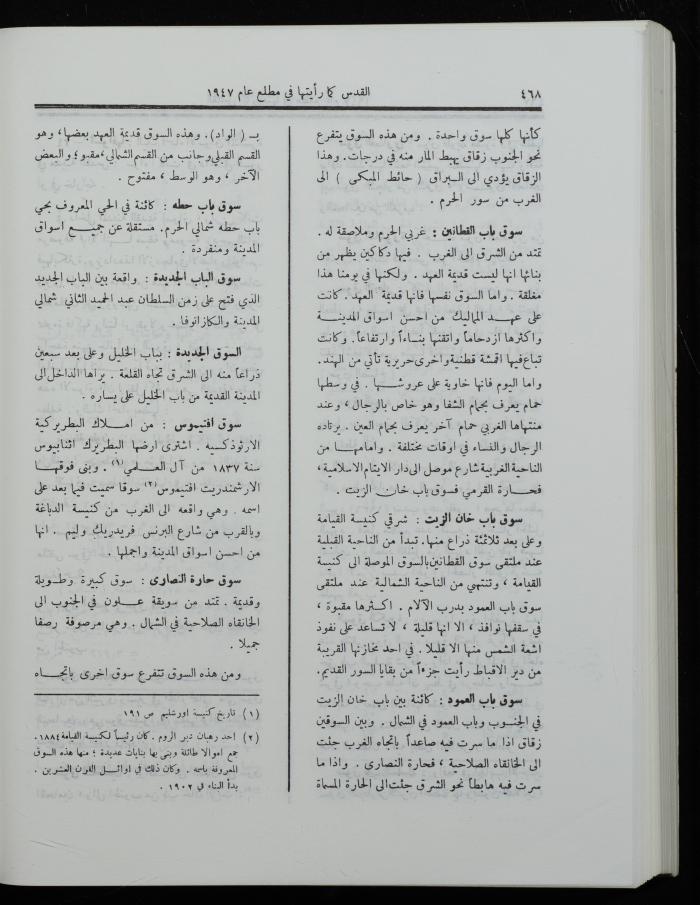 ٤٦٨
القدس كما رأيتها في مطلع عام ١٩٤٧
كأنها كلها سوق واحدة . ومن هذه السوق يتفرع
نحو الجنوب زقاق يهبط المار منه في درجات. وهذا
الزقاق يؤدي الى البراق ( حائط المبكى ) الى
الغرب من سور الحرم .
سوق باب القطانين : غربي الحرم وملاصقة له .
تمتد من الشرق الى الغرب . فيها دكاكين يظهر من
بنائها انها ليست قديمة العهد . ولكنها في يومنا هذا
مغلقة . واما السوق نفسها فانها قديمة العهد . كانت
على عهد المماليك من احسن اسواق المدينة
واكثرها ازدحاماً واتقنها بناءاً وارتفاعاً. وكانت
تباع فيها اقمشة قطنية واخرى حريرية تأتي من الهند.
واما اليوم فانها خاوية على عروشها . في وسطها
حمام يعرف بحمام الشفا وهو خاص بالرجال ، وعند
منتهاها الغربي حمام آخر يعرف بحمام العين . يرتاده
الرجال والنساء في اوقات مختلفة . وامامها من
الناحية الغربية شارع موصل الى دار الايتام الاسلامية ،
فحارة القرمي فسوق باب خان الزيت .
سوق باب خان الزيت : شرقي كنيسة القيامة
وعلى بعد ثلاثمئة ذراع منها. تبدأ من الناحية القبلية
عند ملتقى سوق القطانين بالسوق الموصلة الى كنيسة
القيامة ، وتنتهي من الناحية الشمالية عند ملتقى
سوق باب العمود بدرب الآلام . اكثرها مقبوة ،
في سقفها نوافذ ، الا انها قليلة ، لا تساعد على نفوذ
اشعة الشمس منها الا قليلا . في احد مخازنها القريبة
من دير الاقباط رأيت جزءاً من بقايا السور القديم.
سوق باب العمود : كائنة بين باب خان الزيت
في الجنوب وباب العمود في الشمال . وبين السوقين
زقاق اذا ما سرت فيه صاعداً باتجاه الغرب جئت
الى الخانقاه الصلاحية ، فحارة النصارى . واذا ما
سرت فيه هابطاً نحو الشرق جئت الى الحارة المسماة
بـ ( الواد) . وهذه السوق قديمة العهد بعضها، وهو
القسم القبلي وجانب من القسم الشمالي ، مقبو ؛ والبعض
الآخر ، وهو الوسط ، مفتوح .
سوق باب حطه : كائنة في الحي المعروف بحي
باب حطه شمالي الحرم . مستقلة عن جميع اسواق
المدينة ومنفردة .
سوق الباب الجديدة : واقعة بين الباب الجديد
الذي فتح على زمن السلطان عبد الحميد الثاني شمالي
المدينة والكازانوفا .
السوق الجديدة : بباب الخليل وعلى بعد سبعين
ذراعاً منه الى الشرق تجاه القلعة . يراها الداخل الى
المدينة القديمة من باب الخليل على يساره .
سوق افتيموس : من املاك البطريركية
الارثوذكسيه . اشترى ارضها البطريرك اثناسيوس
سنة ١٨٣٧ من آل العلمي(١) . وبنى فوقها
الارشمندريت افتيموس(٢) سوقا سميت فيما بعد على
اسمه . وهي واقعه الى الغرب من كنيسة الدباغة
وبالقرب من شارع البرنس فريدريك وليم . انها
من احسن اسواق المدينة واجملها .
سوق حارة النصارى : سوق كبيرة وطويلة
وقديمة . تمتد من سويقة علون في الجنوب الى
الخانقاه الصلاحية في الشمال . وهي مرصوفة رصفا
جميلا .
ومن هذه السوق تتفرع سوق اخرى باتجاه
(١) تاريخ كنيسة اورشليم ص ١٩١
(٢) احد رهبان دير الروم . كان رئيساً لكنيسة القيامة ١٨٨٤.
جمع اموالا طائلة وبنى بها بنايات عديدة ؛ منها هذه السوق
المعروفة باسمه . وكان ذلك في اوائل القرن العشرين .
بدأ البناء في ١٩٠٢ .